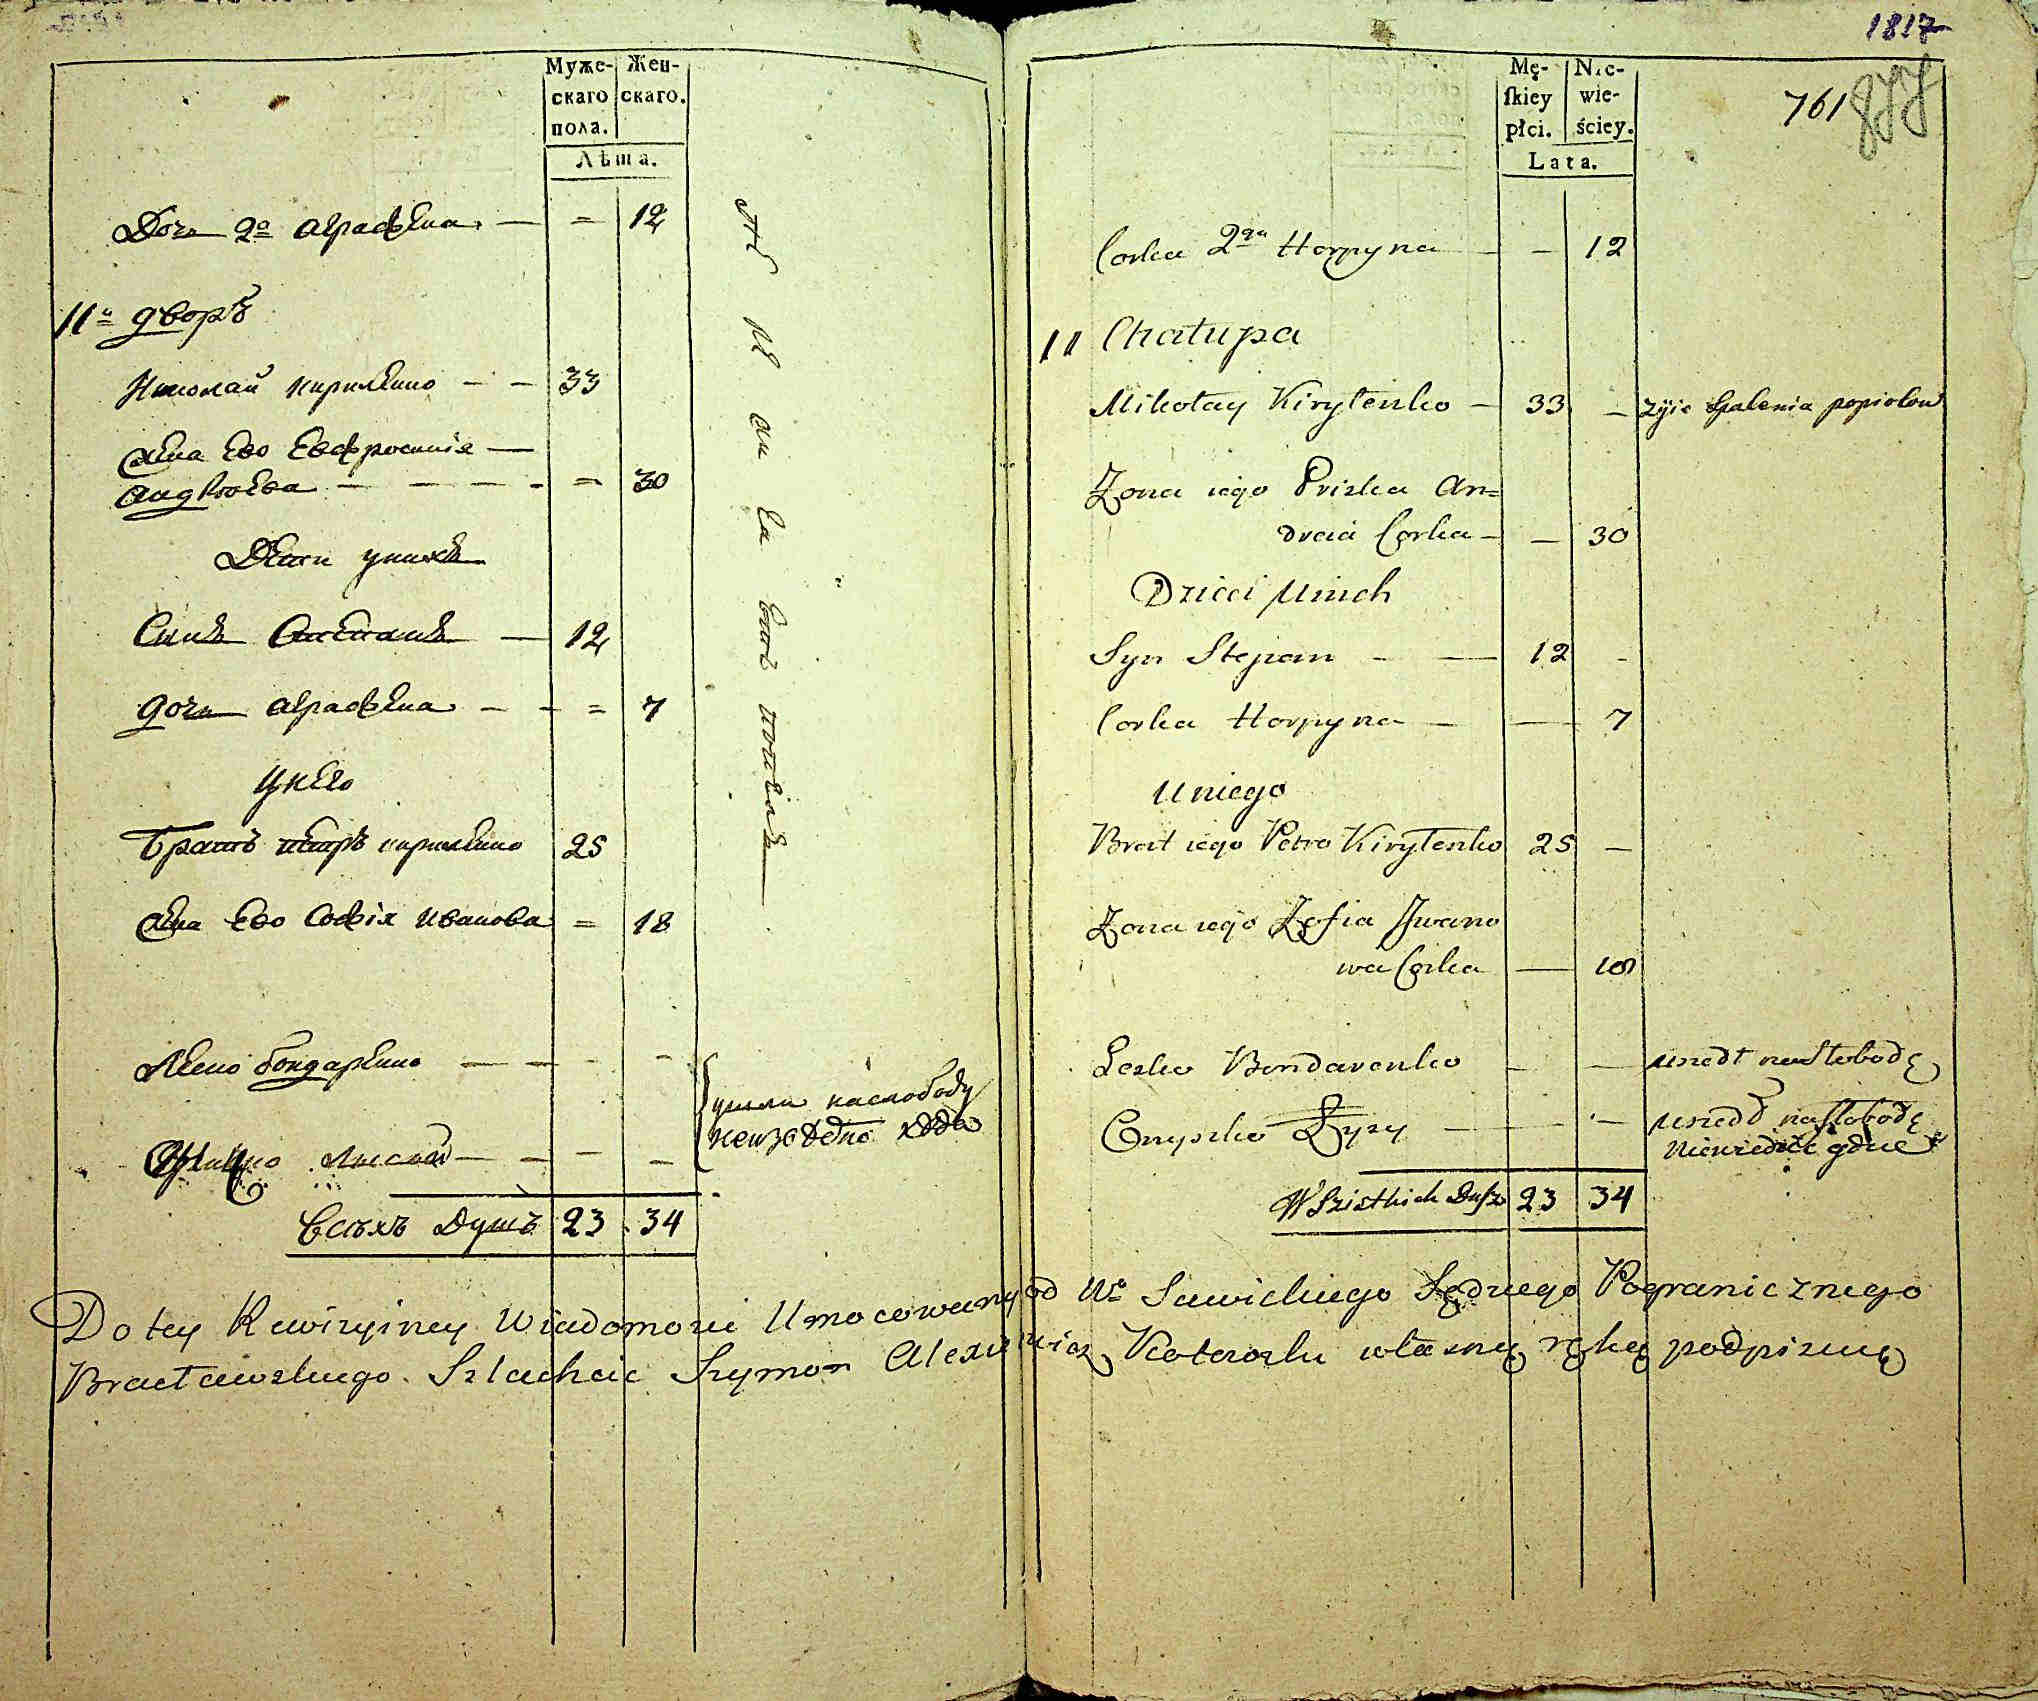 Муже-
скаго
пола.
Жен-
скаго.
Лѣта.
Дочь 2я Аграфена — = 12
11й дворъ
Николай Кириленко — — 33
Жена Ево Евфросинiя —
Андреева — — — — = 30
Дети унихъ
Сынъ Степанъ — 12
дочь Аграфена — — = 7
Унего
Братъ Петръ Кириленко 25
Жена Ево Софiя Иванова = 18
Леско Бондаренко — — — —
— — — —
ушли наслободу
неизвестно
Всѣхъ Душъ 23 34
1817
761
877
Mę-
ſkiey
płci.
Nie-
wie-
ściey.
Lata.
Corka 2ga Horpyna — — 12
11 Chałupa
Mikołay Kirylenko — 33 — żyie Spalenia popiołow
Zona iego Priska An=
dreia Corka — — 30
Dzieci Unich
Syn Stepan — — 12 -
Corka Horpyna — — 7
Uniego
Brat iego Petro Kirylenko 25 —
Zona iego Zofia Jwano
wa Corka — 18
Lesko Bondarenko — — uszedł na Słobodę
Łysy — — — uszedł na Słobodę
Niewiedzieć gdzie
Wszistkich Dusz 23 34
Do tey Rewizyiney Wiadomosci Umocowany od Wo Sawickiego Sędziego Pogranicznego
Bracławskiego Szlachcic Szymon Alexiewicz własną ręką podpisuię